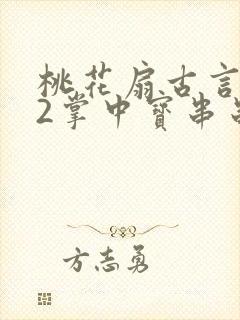 桃花扇古言
2掌中寳串
方志勇